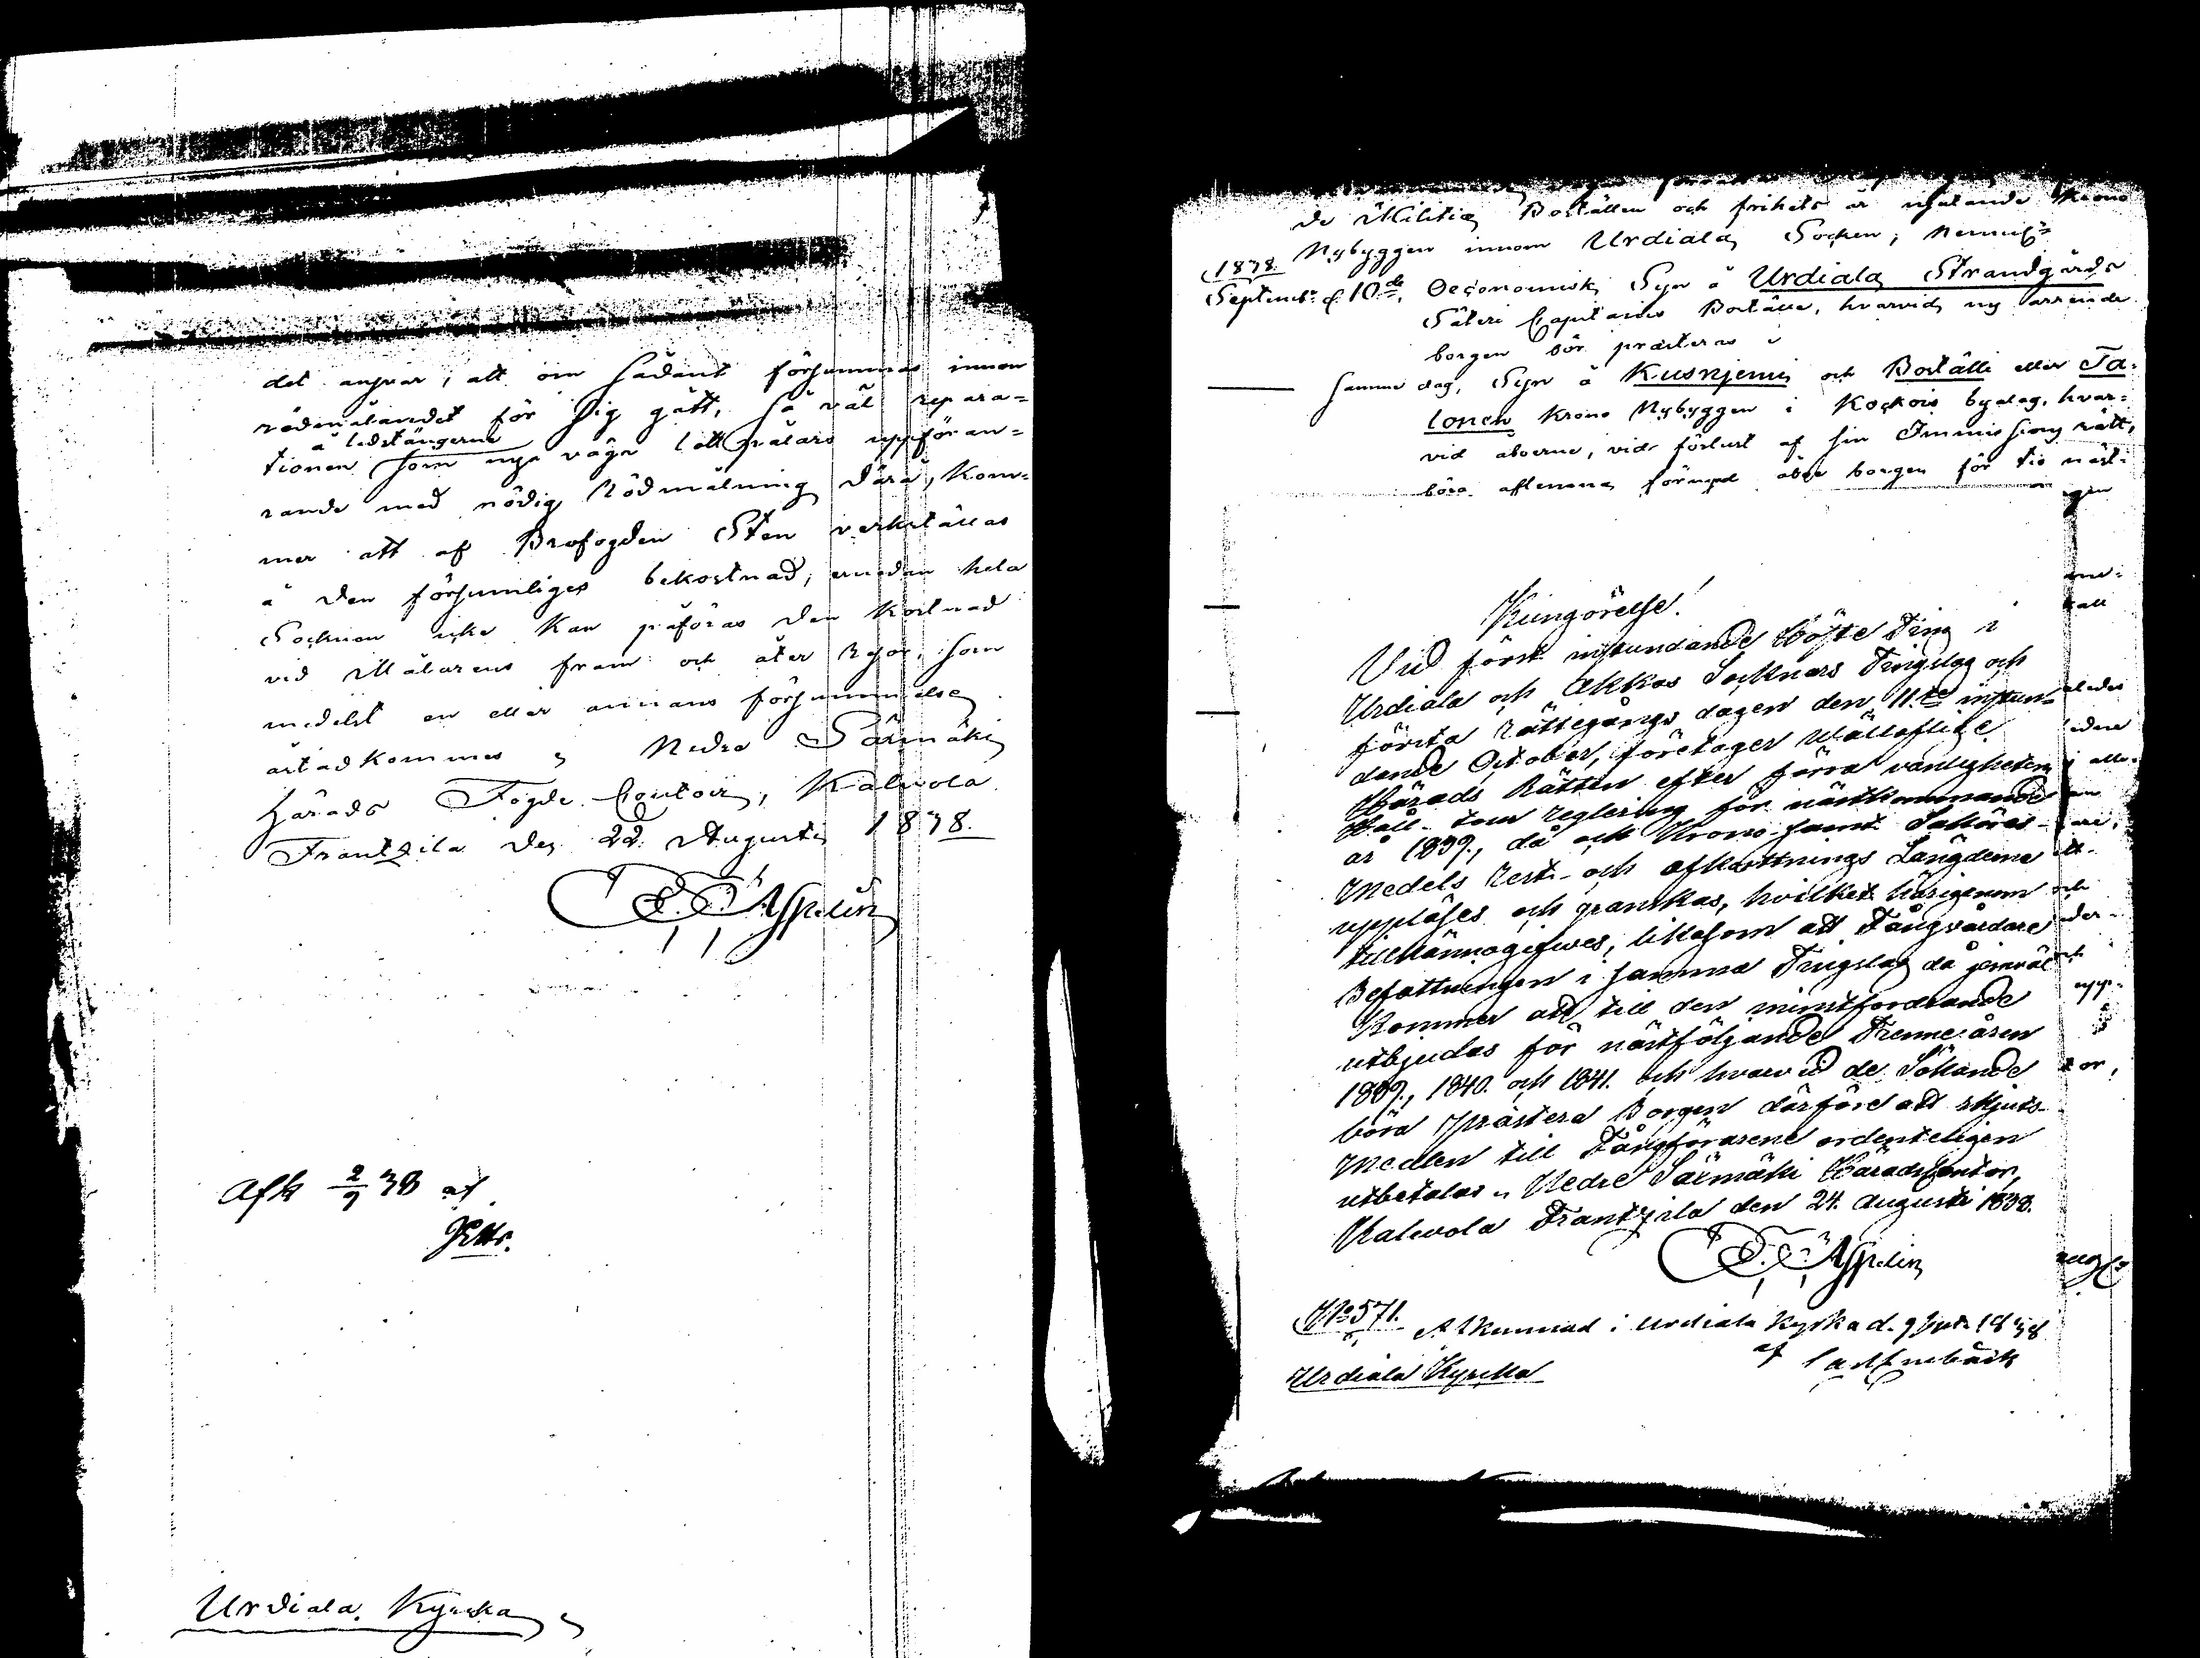 det answar, att om sådant försummas innan
rödmålandet för sig gått, så väl repara=
å ledstängerne
tionen som nya väga lott pålars uppföran=
rande med nödig Rödmålning dära, kom=
mer att af Brofogden Sten verkställas
å den försumliges bekostnad; emedan hela
Socknen icke kan påföras den kostnad
vid Målarens fram och åter resor, som
medelst en eller annans försummelse
åstadkommes Nedre Särmäki
härads Fögde Contoir, Kalvola
Frantzila den 22. Augusti 1838.
Asspelin
Afk 2/9 38 af
Urdiala Kyrcka
de Militiæ Boställen och frihets år njutande Krono
Nybyggen innom Urdiala Socken; Nemnl:
1838.
Septemb: d. 10de, Oeconomisk Syn å Urdiala Strandgårds
Säteri Capitains Boställe, hvarvid ny arrende
borgen bör presteras
samma dag, Syn å Kusnjemi och Boställi eller Ta=
lonen Krono Nybyggen i Kockois bydag, hvar=
vid åboerne, vid förlust af sin Immissions rätt,
böra aflemna förnyad åbo borgen för tio näst=
Kungörelse!
Vid först instundande Höste Ting i
Urdiala och Akkas Socknars Tingslag och
första rättegångs dagen den 11.te instun=
dande October, företager Wällofliga
Härads Rätten efter förra vanligheten
Håll- som reglering för nästkommande
år 1839., då och Krono samt Saköres-
Medels rest- och afkortnings Längderne
uppläses och granskas, hvilket härigenom
tillkännagifwes, likasom att Fångvårdare
Befattningen i samma Tingslag då jemväl
Kommer att till den minstfordrande
utbjudas för nästföljande Trenne åren
1839., 1840. och 1841. och hvarvid de Sökande
böra prästera Borgen därföre att skjuts-
Medlen till Fångförarene ordenteligen
utbetalas. Nedre Särmäki Häradscontor,
Kalvola Frantzila den 24. Augusti 1838.
Asspelin
No 571. Afkunnad i Urdiala Kyrka d. 9 Sept. 1838
af
Urdiala Kyrcka